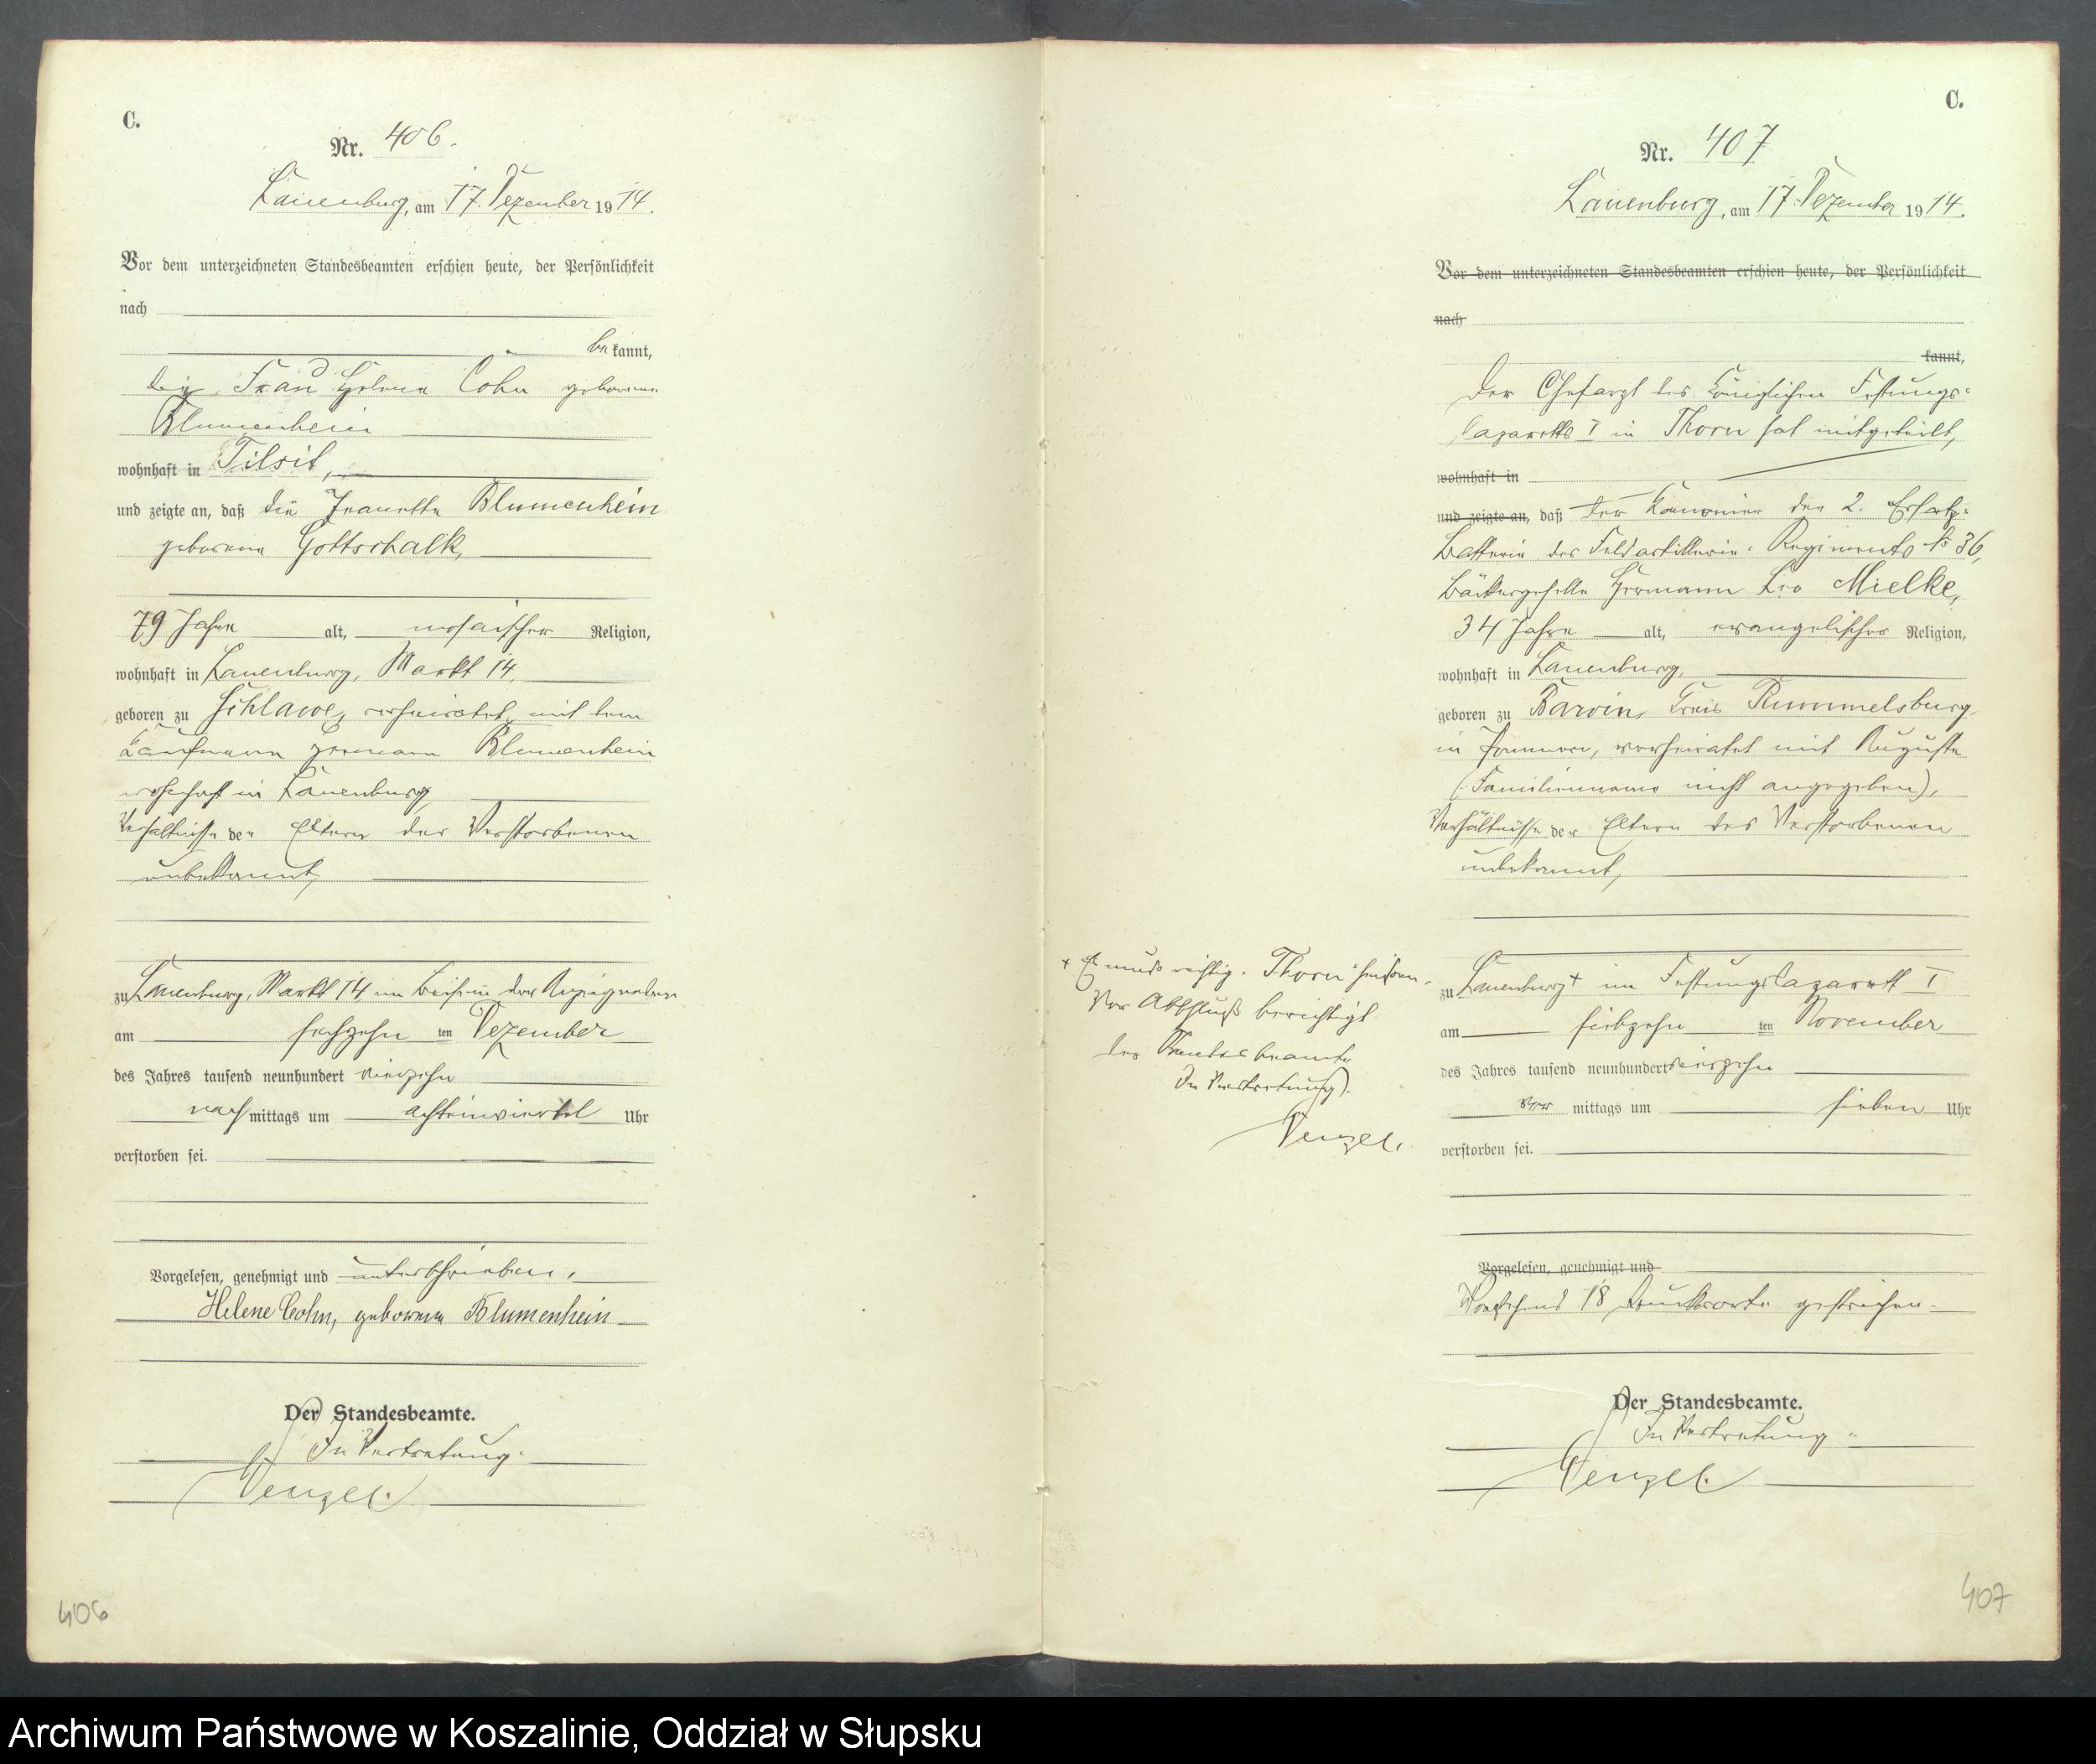 C.
Nr. 406.
Lauenburg, am 17. Dezember 1914.
Vor dem unterzeichneten Standesbeamten erschien heute, der Persönlichkeit
nach
bekannt,
die Frau Helene Cohn geborene
Blumenhein
wohnhaft in Tilsit,
und zeigte an, daß die Jeanette Blumenhein
geborene Gottschalk,
79 Jahre alt, mosaischer Religion,
wohnhaft in Lauenburg, Markt 14,
geboren zu Schlawe, verheiratet mit dem
Kaufmann Hermann Blumenhein
wohnhaft in Lauenburg
Verhältnisse der Eltern der Verstorbenen
unbekannt,
zu Lauenburg, Markt 14 im Beisein der Anzeigenden
am sechzehn ten Dezember
des Jahres tausend neunhundert vierzehn
nachmittags um achteinviertel Uhr
verstorben sei.
Vorgelesen, genehmigt und unterschrieben,
Helene Cohn, geborene Blumenhein
Der Standesbeamte.
In Vertretung.
Wenzel.
406
C.
Nr. 407
Lauenburg, am 17. Dezember 1914.
Vor dem unterzeichneten Standesbeamten erschien heute, der Persönlichkeit
nach
kannt,
Der Chefarzt des Königlichen Festungs-
lazaretts I in Thorn hat mitgeteilt,
wohnhaft in
und zeigte an, daß der Kanonier der 2. Ersatz-
Batterie des Feldartillerie-Regiments No 36,
Bäckergeselle Hermann Leo Mielke,
34 Jahre alt, evangelischer Religion,
wohnhaft in Lauenburg,
geboren zu Barvin, Kreis Rummelsburg
in Pommern, verheiratet mit Auguste
(Familienname nicht angegeben),
Verhältnisse der Eltern des Verstorbenen
unbekannt,
zu Lauenburg + im Festungslazarett I
am siebzehn ten November
des Jahres tausend neunhundert vierzehn
vor mittags um sieben Uhr
verstorben sei.
Vorgelesen, genehmigt und
Vorstehend 18 Druckworte gestrichen.
Der Standesbeamte.
In Vertretung.
Wenzel.
+ Es muß richtig "Thorn" heißen.
Vor Abschluß berichtigt
Der Standesbeamte
In Vertretung.
Wenzel.
407
Archiwum Państwowe w Koszalinie, Oddział w Słupsku